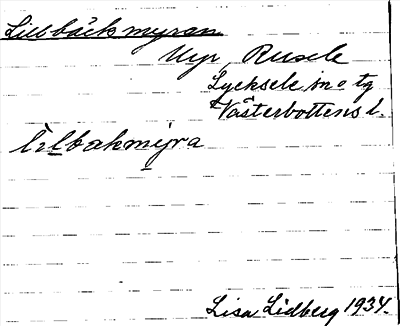 Lillbäckmyran
Myr, Rusele
Lycksele sn o tg
Västerbottens l.
lilbakmyra
Lisa Lidberg 1934.